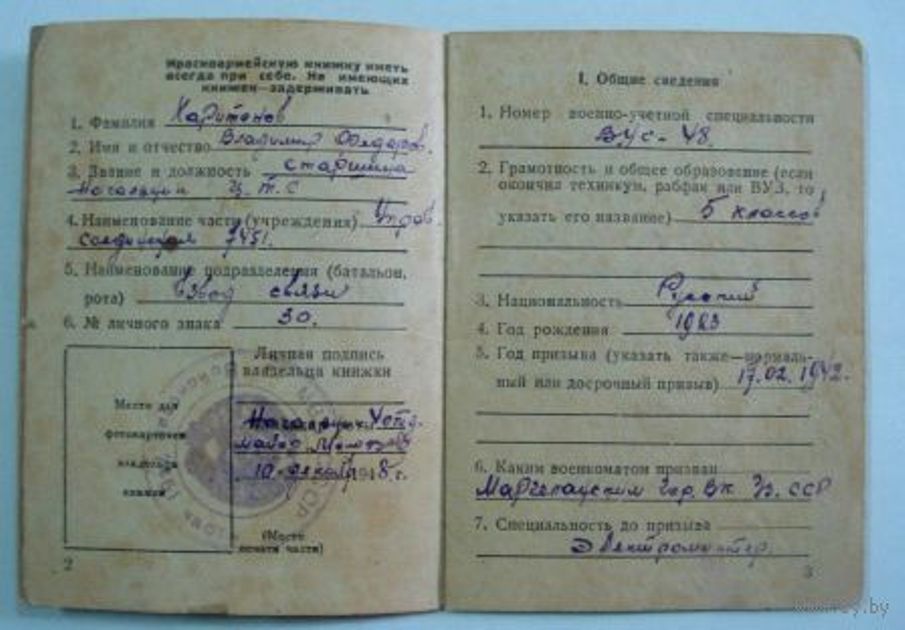 Красноармейскую книжку иметь
всегда при себе. Не имеющих
книжек—задерживать
1. Фамилия Харитонов
2. Имя и отчество Владимир Федоров.
3. Звание и должность старшина
4. Наименование части (учреждения) Управ.
7451.
5. Наименование подразделения (батальон,
рота) взвод связи
6. № личного знака 30.
Место для
фотокарточки
владельца
книжки
Личная подпись
владельца книжки
майор
10 декабр 1948 г.
(Место
печати части)
2
I. Общие сведения
1. Номер военно-учетной специальности
ВУС-48.
2. Грамотность и общее образование (если
окончил техникум, рабфак или ВУЗ, то
указать его название) 5 классов
3. Национальность Русский
4. Год рождения 1923
5. Год призыва (указать также—нормаль-
ный или досрочный призыв) 17.02.1942.
6. Каким военкоматом призван
Маргеланским Гор. ВК Уз. ССР
7. Специальность до призыва
Электромонтер.
3